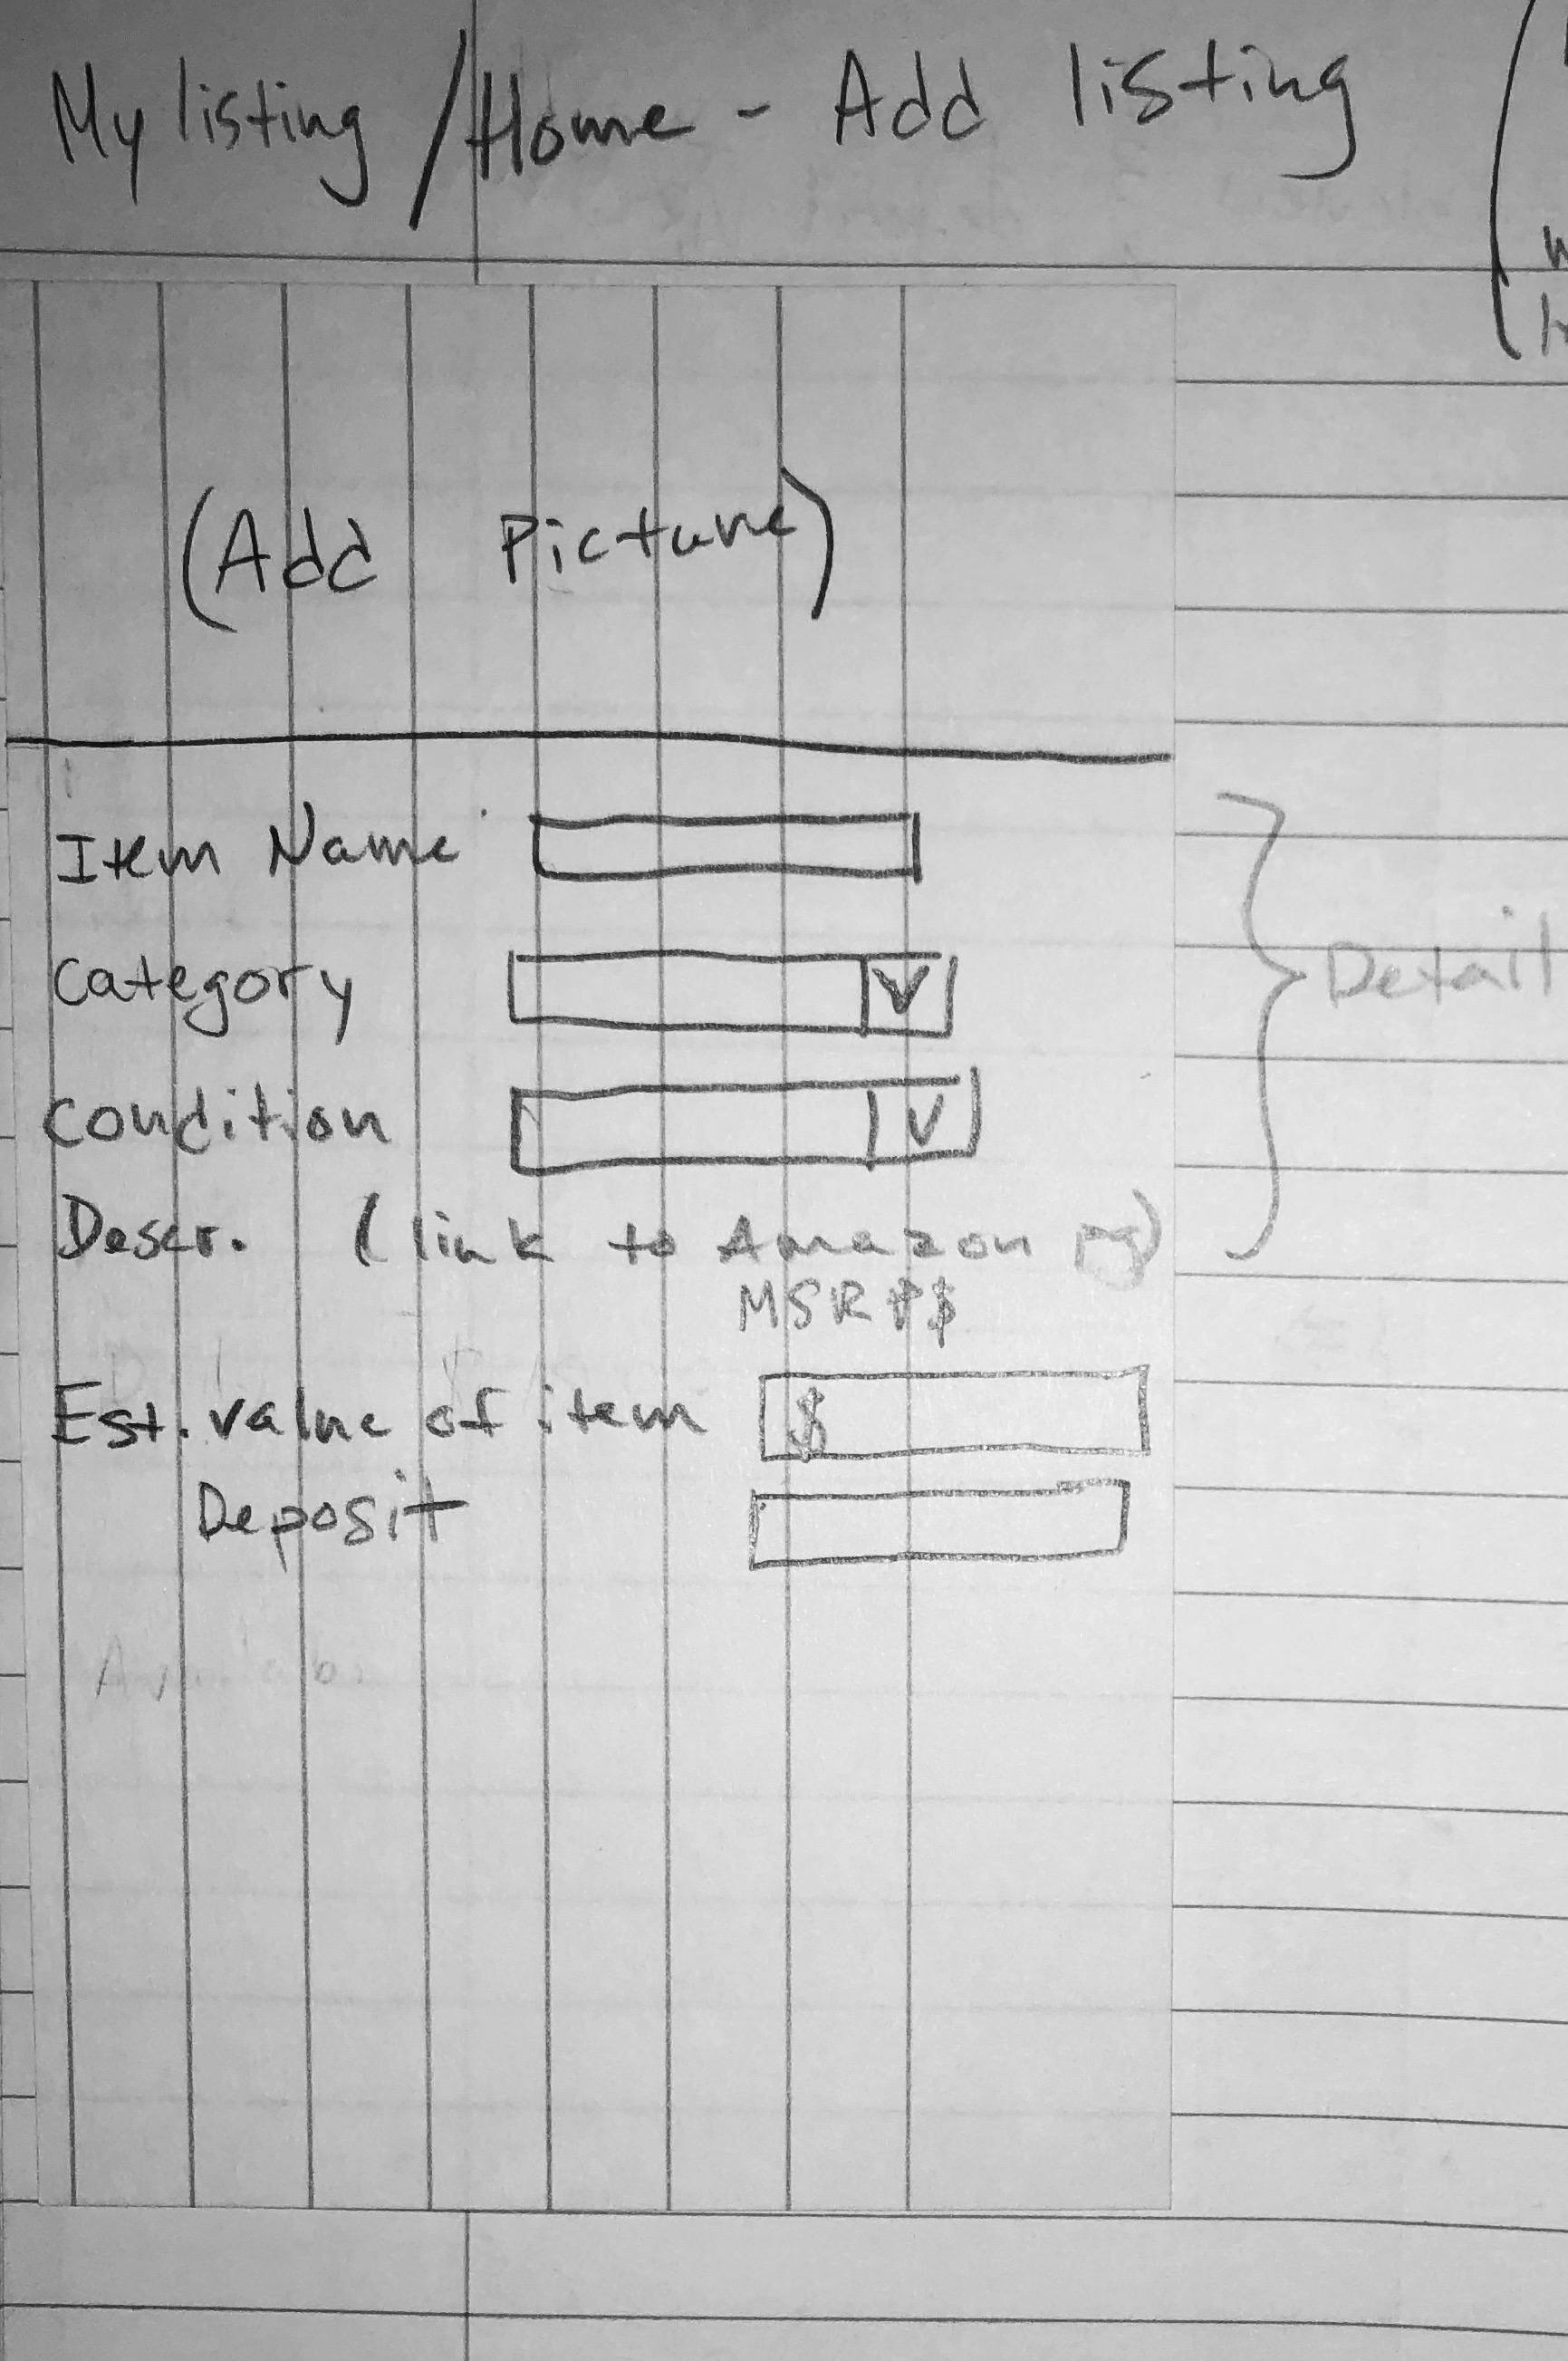 My listing / Home - Add listing
(Add Picture)
Item Name
Category
Condition
Descr. (link to Amazon pg)
MSRP $
Detail
Est. value of item $
Deposit